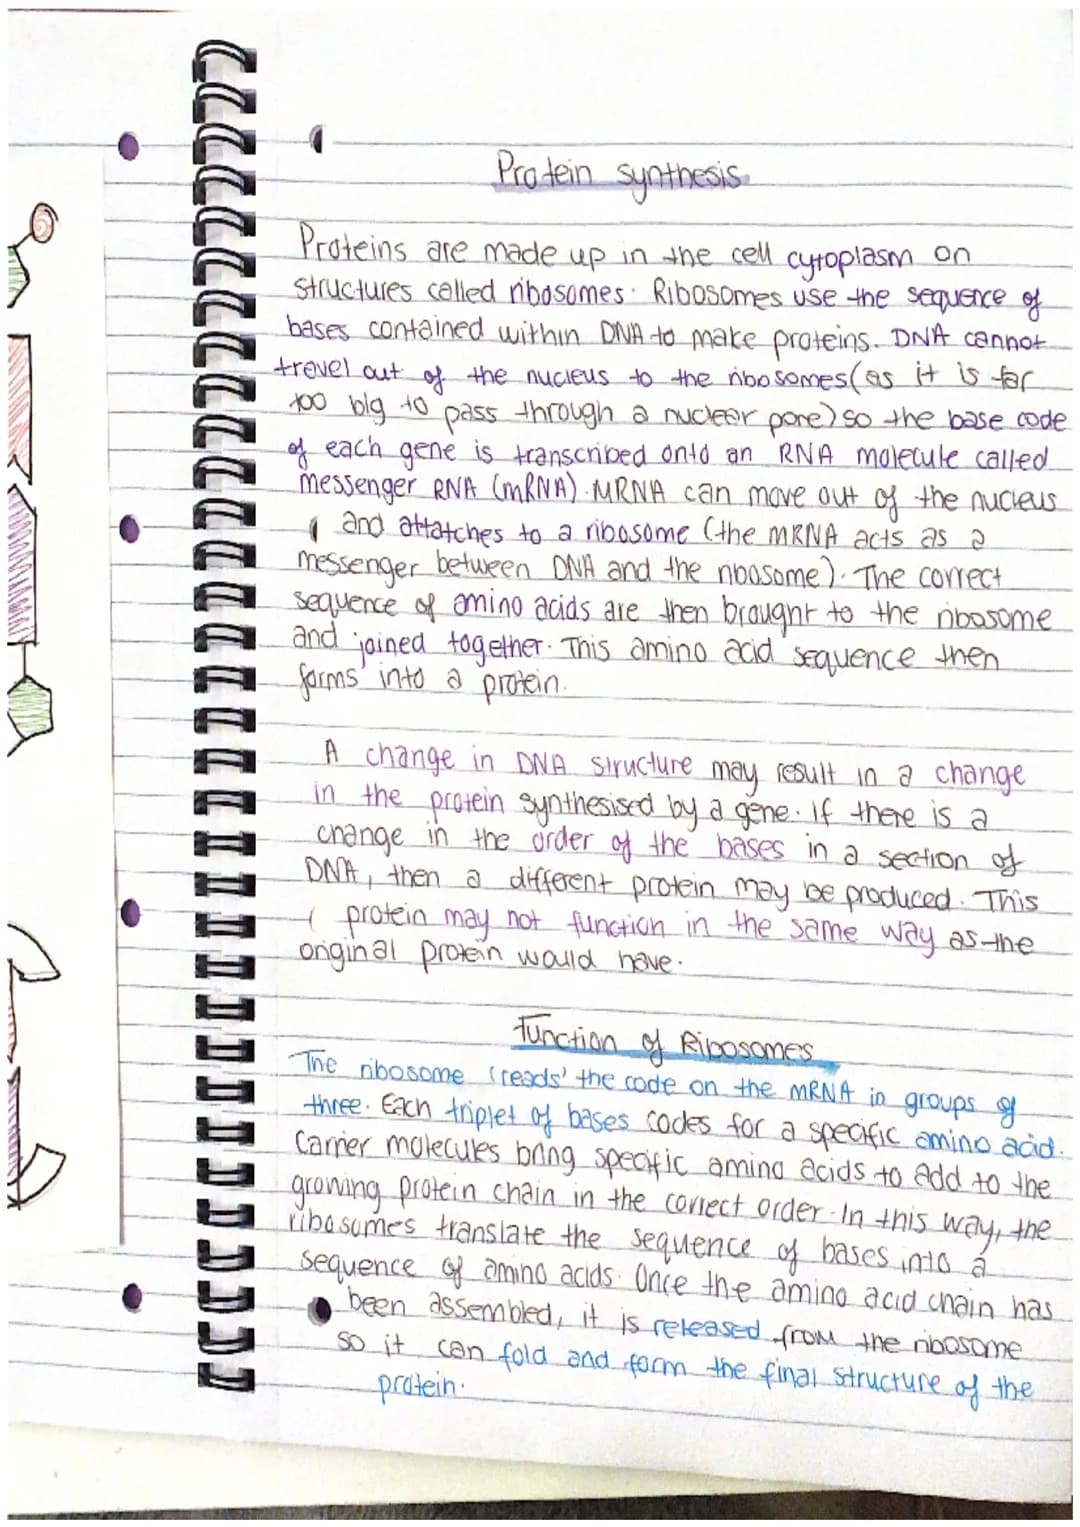 Protein synthesis
Proteins are made up in the cell cytoplasm on
structures called ribosomes. Ribosomes use the sequence of
bases contained within DNA to make proteins. DNA cannot
travel out of the nucleus to the ribosomes (as it is far
too big to pass through a nuclear pore) so the base code
of each gene is transcribed onto an RNA molecule called
messenger RNA (mRNA). MRNA can move out of the nucleus
and attatches to a ribosome (the MRNA acts as a
messenger between DNA and the ribosome). The correct
sequence of amino acids are then brought to the ribosome
and joined together. This amino acid sequence then
forms into a protein.
A change in DNA structure may result in a change
in the protein synthesised by a gene. If there is a
change in the order of the bases in a section of
DNA, then a different protein may be produced. This
protein may not function in the same way as the
original protein would have.
Function of Ribosomes
The ribosome 'reads' the code on the mRNA in groups of
three. Each triplet of bases codes for a specific amino acid.
Carrier molecules bring specific amino acids to add to the
growing protein chain in the correct order. In this way, the
ribosomes translate the sequence of bases into a
sequence of amino acids. Once the amino acid chain has
been assembled, it is released from the ribosome
so it can fold and form the final structure of the
protein.